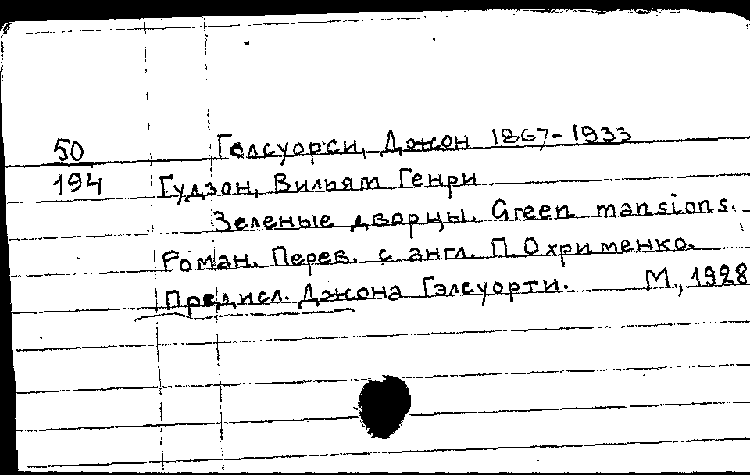 50 Голсуорси, Джон 1867-1933
194 Гудзон, Вильям Генри
Зеленые дворцы. Green mansions.
Роман. Перев. с англ. П. Охрименко.
Предисл. Джона Гэлсуорти. М., 1928